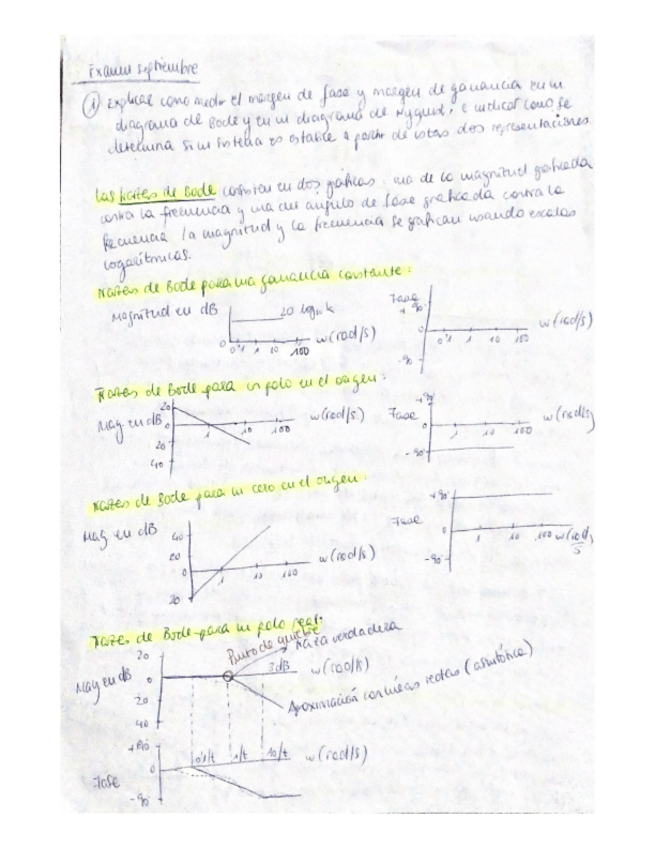 Examen septiembre
① Explicar como medir el margen de fase y margen de ganancia en un
diagrama de Bode y en un diagrama de Nyquist, e indicar como se
determina si un sistema es estable a partir de estas dos representaciones
Las trazas de Bode consisten en dos gráficas: una de la magnitud graficada
contra la frecuencia y una del ángulo de fase graficada contra la
frecuencia. La magnitud y la frecuencia se grafican usando escalas
logarítmicas.
Trazas de Bode para una ganancia constante:
Magnitud en dB 20 log k
0 0'1 1 10 100 w(rad/s)
Fase + 90
0 1 10 100 w(rad/s)
-90
Trazas de Bode para un polo en el origen:
Mag en dB 20 0 20 40
1 10 100 w(rad/s)
Fase +90 0 -90
1 10 100 w(rad/s)
Trazas de Bode para un cero en el origen:
Mag en dB 40 20 0 20
1 10 100 w(rad/s)
Fase +90 0 -90
1 10 100 w(rad/s)
Trazas de Bode para un polo real:
Punto de quiebre
Traza verdadera
Mag en dB 20 0 20 40
3dB w(rad/s)
Aproximación con líneas rectas (asintótica)
Fase 0 -90
0'1/t 1/t 10/t w(rad/s)